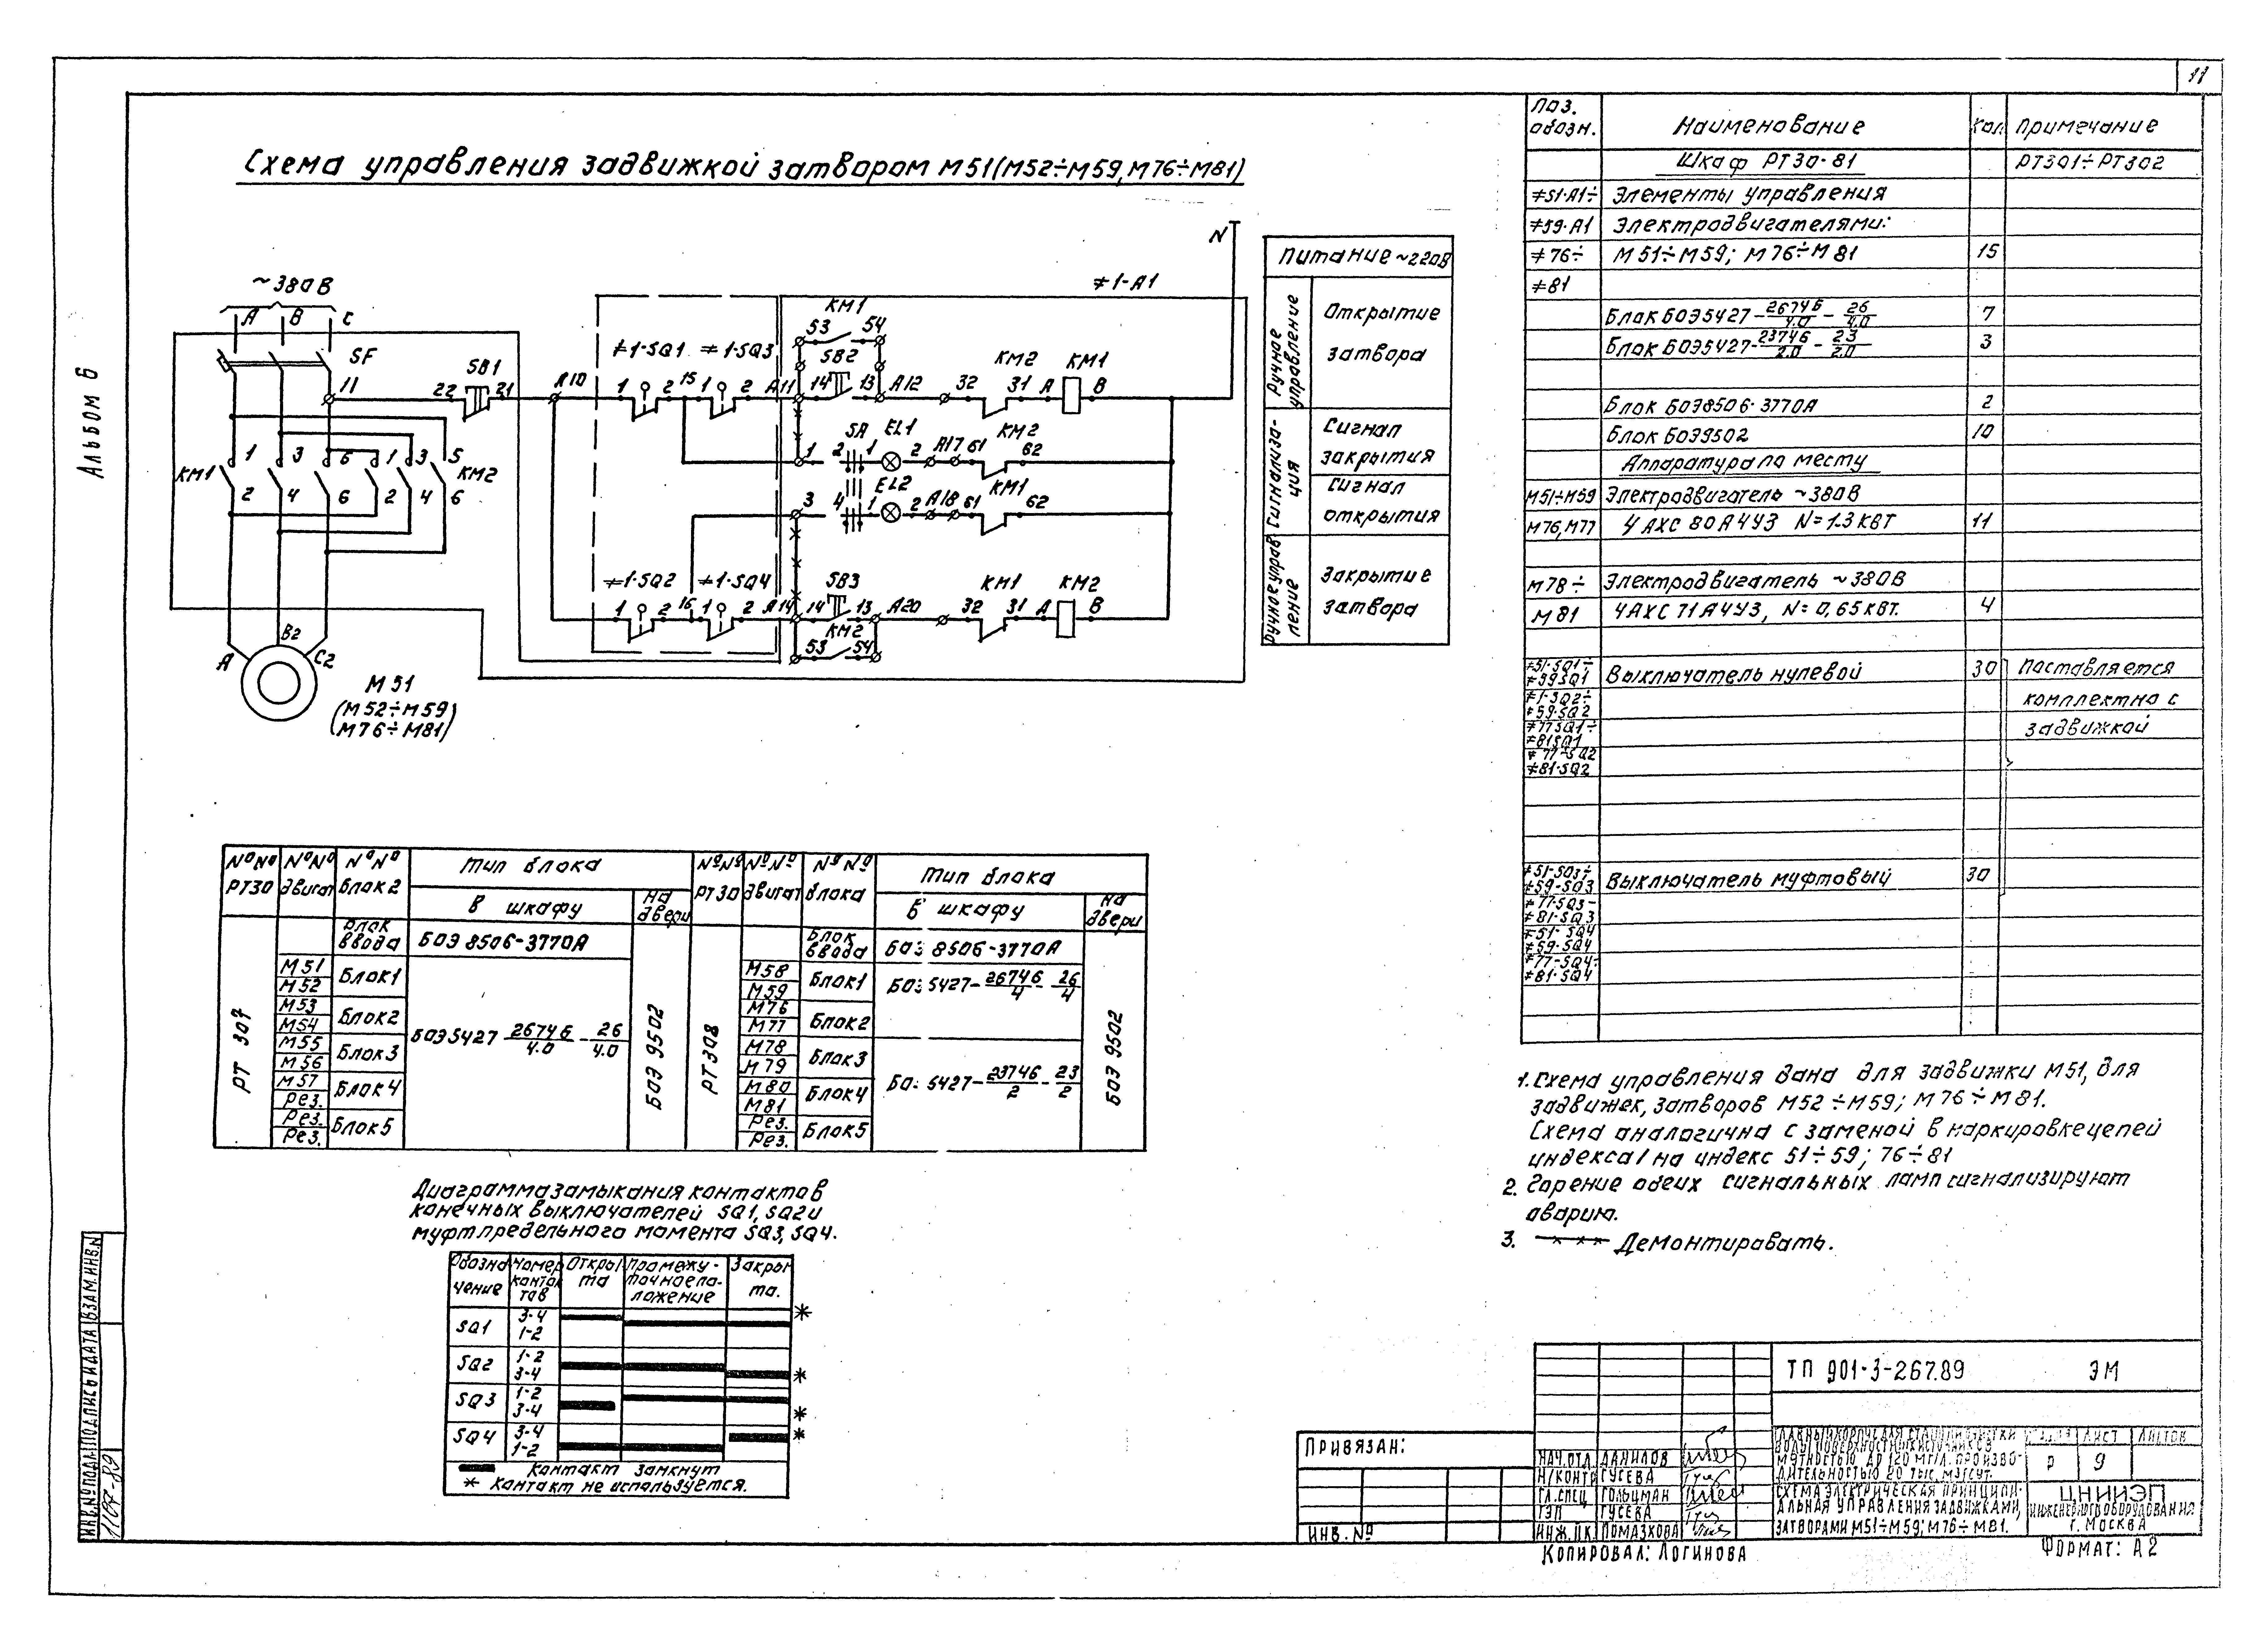 11
Альбом 6
Схема управления задвижкой затвором М51(М52÷М59, М76÷М81)
~380В
А В С
SF
11
22 SB1 21
А10
≠1-SQ1 ≠1-SQ3
1 2 15 1 2 А11
КМ1
53 54
SB2
14 13 А12
КМ2
32 31
КМ1
А В
N
≠1-А1
КМ1 1 3 5 1 3 5 КМ2
2 4 6 2 4 6
1 SA 2 1 EL1 2 А17 61 КМ2 62
3 4 1 EL2 2 А18 61 КМ1 62
≠1-SQ2 ≠1-SQ4
1 2 16 1 2 А14
SB3
14 13 А20
КМ2
53 54
КМ1
32 31
КМ2
А В
А В2 С2
М51
(М52÷М59)
(М76÷М81)
Питание ~220В
Ручное управление
Открытие затвора
Сигнализация
Сигнал закрытия
Сигнал открытия
Ручное управление
Закрытие затвора
Поз. обозн. Наименование Кол. Примечание
Шкаф РТ30-81 РТ301÷РТ302
≠51-А1÷ Элементы управления
≠59-А1 Электродвигателями:
≠76÷ М51÷М59; М76÷М81 15
≠81
Блок БОЭ5427-2674Б/4.0 - 26/4.0 7
Блок БОЭ5427-2374Б/2.0 - 23/2.0 3
Блок БОЭ8506-3770А 2
Блок БОЭ9502 10
Аппаратура по месту
М51÷М59 Электродвигатель ~380В
М76, М77 4АХС 80А4У3 N=1.3 КВТ 11
М78÷ Электродвигатель ~380В
М81 4АХС 71А4У3, N=0,65КВТ. 4
≠51-SQ1÷ ≠59SQ1 Выключатель нулевой 30 Поставляется
≠1-SQ2÷ ≠59-SQ2 комплектно с
≠77SQ1÷ ≠81SQ1 задвижкой
≠77-SQ2 ≠81-SQ2
≠51-SQ3÷ ≠59-SQ3 Выключатель муфтовый 30
≠77-SQ3- ≠81-SQ3
≠51-SQ4 ≠59-SQ4
≠77-SQ4- ≠81-SQ4
№№ РТ30 №№ двигат №№ Блок2 Тип блока
В шкафу На двери
РТ 307
Блок ввода БОЭ 8506-3770А
М51 М52 Блок1
М53 М54 Блок2
М55 М56 Блок3
М57 Рез. Блок4
Рез. Рез. Блок5
БОЭ5427 2674Б/4.0 - 26/4.0
БОЭ 9502
№№ РТ30 №№ двигат №№ блока Тип блока
В шкафу На двери
РТ308
Блок ввода БОЭ 8506-3770А
М58 М59 Блок1 БОЭ 5427-2674Б/4 - 26/4
М76 М77 Блок2
М78 М79 Блок3
М80 М81 Блок4 БОЭ 5427-2374Б/2 - 23/2
Рез. Рез. Блок5
БОЭ 9502
Диаграмма замыкания контактов
конечных выключателей SQ1, SQ2 и
муфт предельного момента SQ3, SQ4.
Обозначение Номер контактов Открыта Промежуточное положение Закрыта.
SQ1 3-4 1-2 *
SQ2 1-2 3-4 *
SQ3 1-2 3-4 *
SQ4 3-4 1-2 *
Контакт замкнут
* Контакт не используется.
1. Схема управления дана для задвижки М51, для
задвижек, затворов М52÷М59; М76÷М81.
Схема аналогична с заменой в маркировке цепей
индекса 1 на индекс 51÷59; 76÷81
2. Горение обеих сигнальных ламп сигнализируют
аварию.
3. Демонтировать.
ТП 901-3-267.89 ЭМ
Главный корпус для станции очистки
воды поверхностных источников
мутностью до 120 мг/л. произво-
дительностью 20 тыс. м3/сут.
Лист Листов
Р 9
Схема электрическая принципи-
альная управления задвижками,
затворами М51÷М59; М76÷М81.
ЦНИИЭП
инженерного оборудования
г. Москва
Нач. отд. Данилов
Н/контр Гусева
Гл. спец Гольцман
ГЭП Гусева
Инж. IIк. Помазкова
Привязан:
Инв. №
Копировал: Логинова
Формат: А2
Инв. № подл. Подпись и дата Взам. инв. №